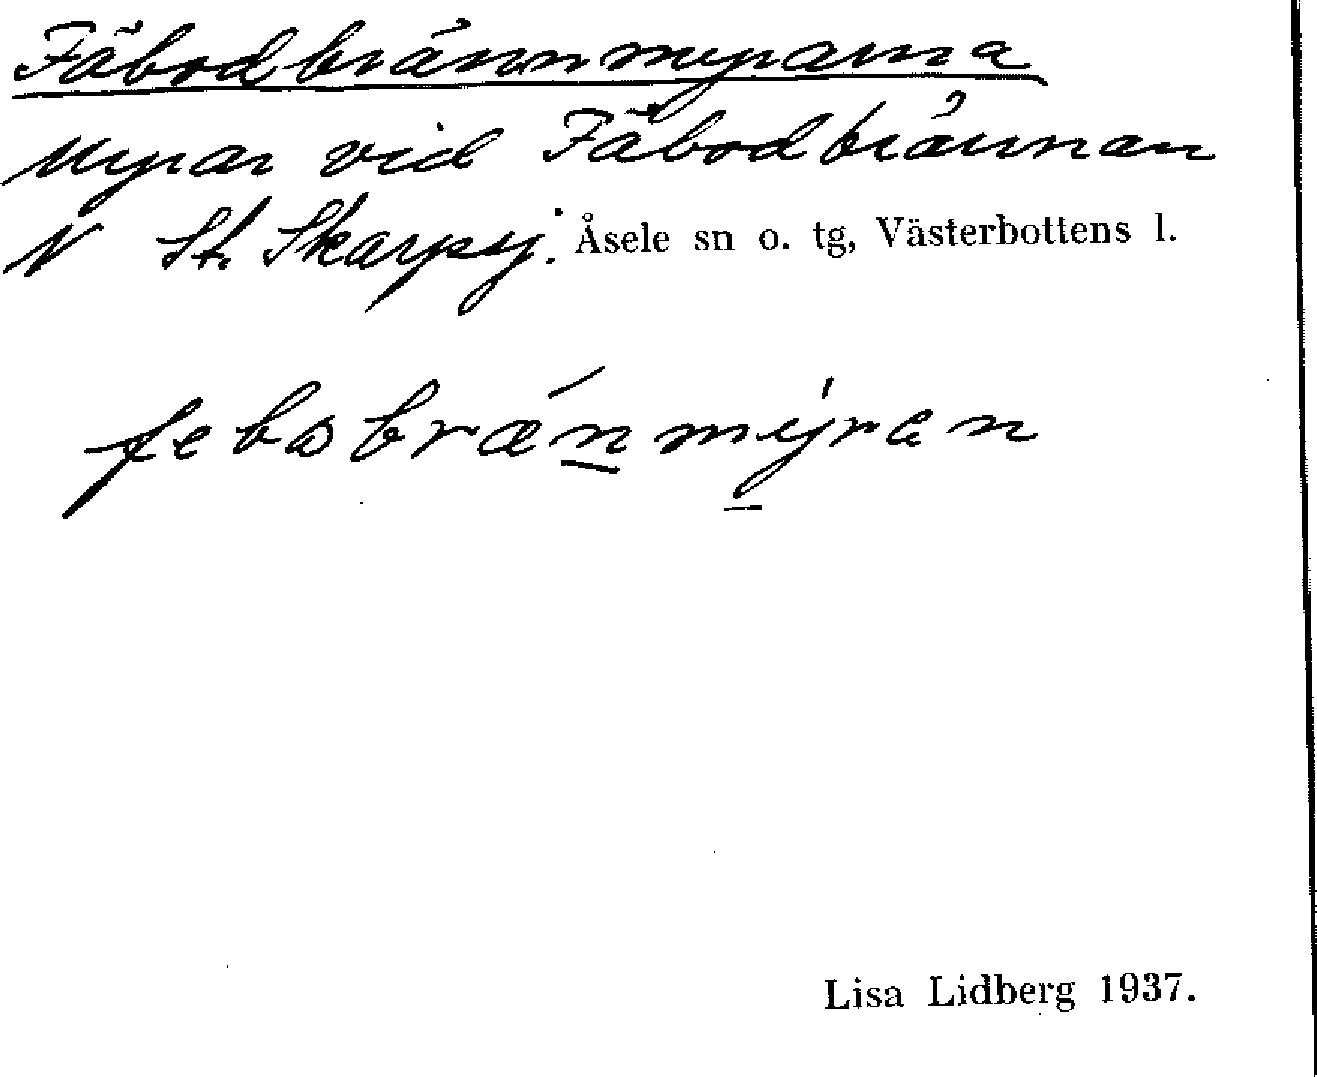 Fäbodbrännmyrarna
Myrar vid Fäbodbrännan
N St. Skarpsj. Åsele sn o. tg, Västerbottens l.
febosbrǽn̲mẏ̲ran
Lisa Lidberg 1937.